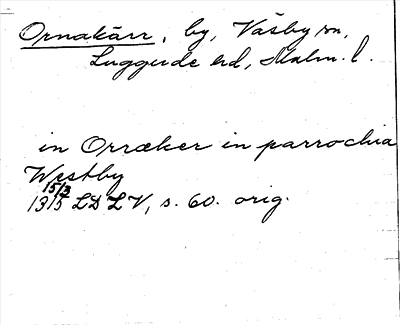 Ornakärr, by, Väsby sn,
Luggude hd, Malm. l.
in Orræker in parrochia
Westby
15/3
1315 LDLV, s. 60. orig.